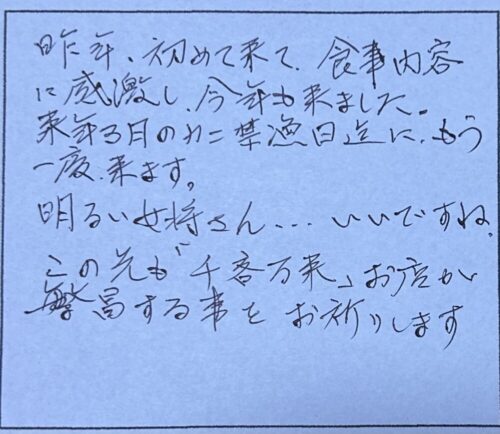 昨年、初めて来て、食事内容
に感激し、今年も来ました。
来年3月のカニ禁漁日迄に、もう
一度、来ます。
明るい女将さん...いいですね。
この先も「千客万来」お店が
繁昌する事をお祈りします